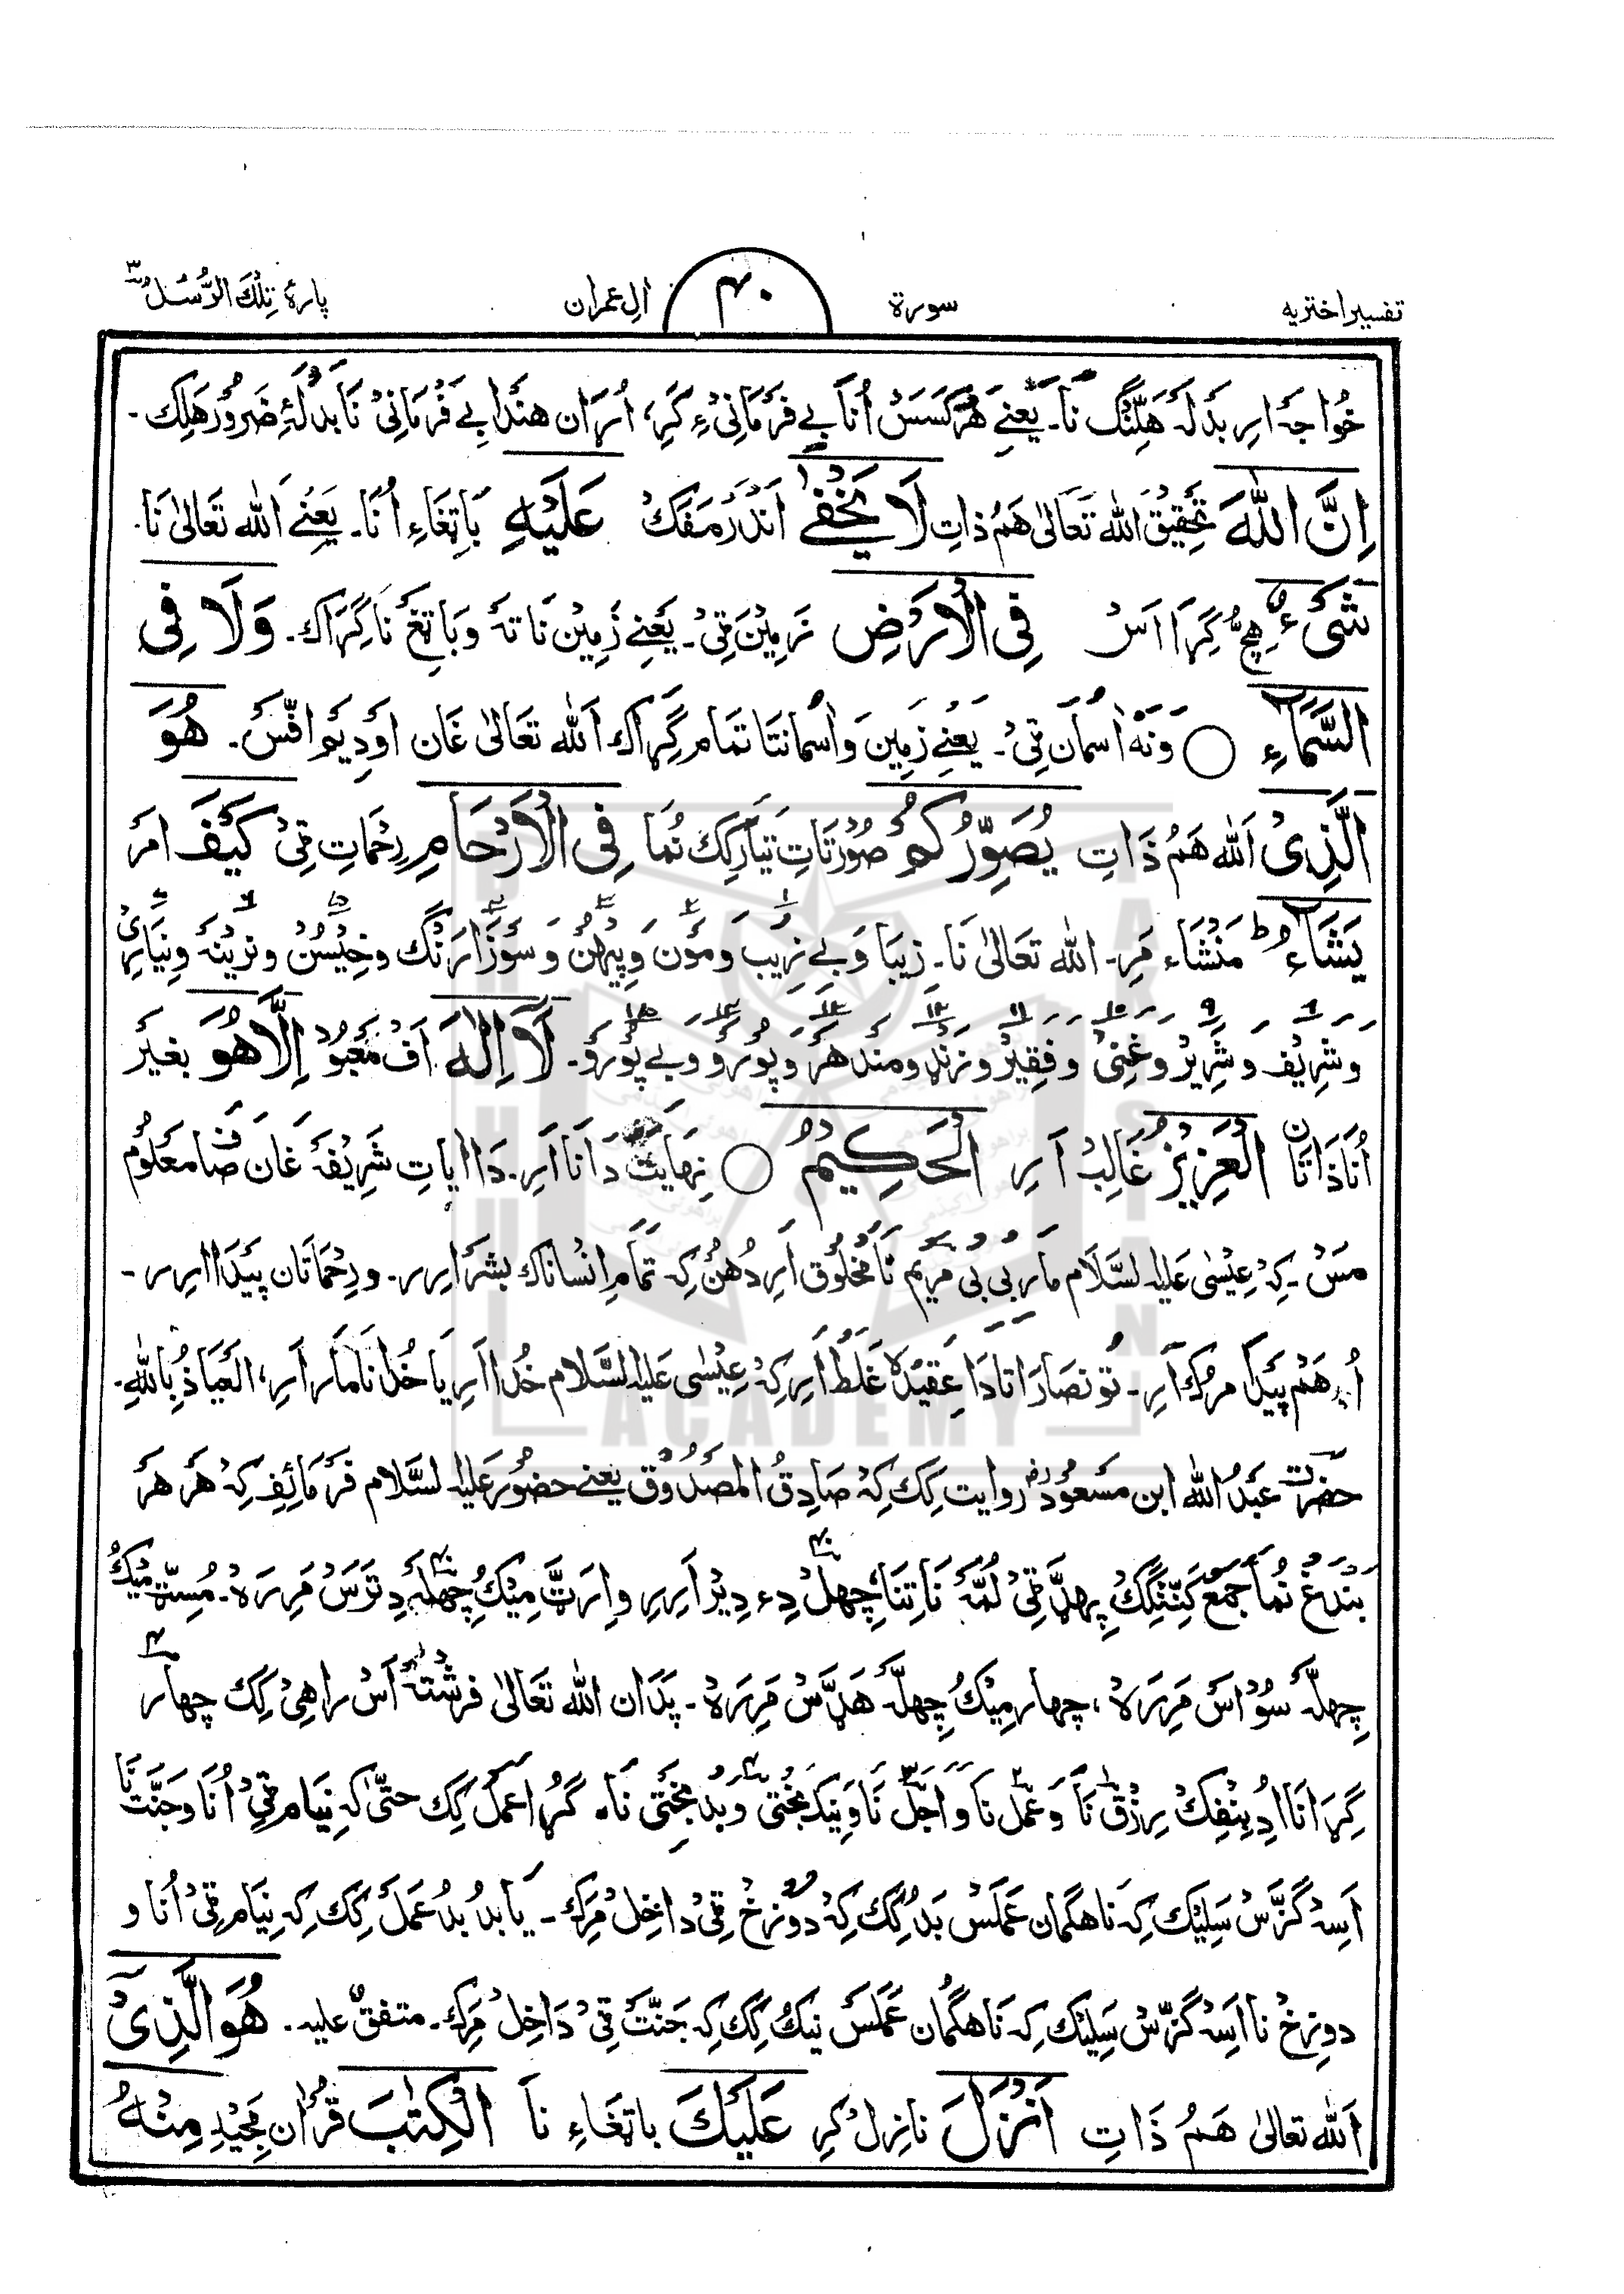 تفسیر اختریه سورة ۴۰ اٰلِ عمران پارهٔ تِلْكَ الرُّسُلُ ۳
خُواجَہ اَرِ بَدلَہ هَلِّنگ نَا۔ یَعنِے هَرکَسَسْ اُنَا بے فَرمَانِیْ ءِ کَرِ، اُرَان هَندَا بے فَرْمَانِیْ نَا بَدلَہ ءِ ضَرُورْ هَلِك۔
اِنَّ اللّٰهَ تَحْقِیْقْ اَللّٰه تَعَالیٰ هَمْ ذَاتِ لَا یَخْفٰے اَندَرْ مَفَكْ عَلَیْهِ بَاتِغَاءِ اُنَا۔ یَعْنِے اَللّٰه تَعَالیٰ نَا۔
شَیْءٌ هِچْ گِڑَا اَسْ فِی الْاَرْضِ زَمِیْن ٹِیْ۔ یَعْنِے زَمِیْن نَا تَہ وَ بَاتِغَ نَا گِڑَاك۔ وَلَا فِی
السَّمَآءِ ○ وَ نَہ اٰسْمَان ٹِیْ۔ یَعْنِے زَمِین وَ اٰسْمَانتَا تَمَام گِڑَاك اَللّٰه تَعَالیٰ غَان اَو دِیْم اَفَّسْ۔ هُوَ
الَّذِیْ اَللّٰه هَمْ ذَاتِ یُصَوِّرُكُمْ صُوْرَتَاتِ تَیَارْ کِك نُمَا فِی الْاَرْحَامِ رِحْمَاتِ ٹِیْ كَیْفَ اَمَر
یَشَآءُ ط مَنْشَاء مَرِ۔ اَللّٰه تَعَالیٰ نَا۔ زِیبَا وَ بے زِیْب وَ مَوْن وَ پِیْهُن وَ سَوْزَا رَنْگ وَ خِیْسُنْ وَ نَرِیْنَہ وَ نِیَارِیْ
وَ شَرِیْف وَ شَرِیرْ وَ غَنِیْ وَ فَقِیْرْ وَ نَرْنڈ وَ مَنڈَهَرْ وَ پُوْرَوْ وَ بے پُوْرَوْ۔ لَآ اِلٰهَ اَفْ مَعْبُوْد اِلَّا هُوَ بَغَیْر
اُنَا ذَاتَان الْعَزِیْزُ غَالِبْ اَرِ الْحَكِیْمُ ○ نِهَایَتْ دَانَا اَرِ۔ دَا اٰیَاتِ شَرِیْفَہ غَان صَافْ مَعْلُوْم
مَسْ۔ کِہ عِیْسٰی عَلَیہِ السَّلَام مَار بِی بِی مَرِیَم نَا مَخْلُوْق اَرِ دُهُنْ کِہ تَمَام اِنْسَانَاك بَشَرْ اَرِر۔ وَ رِحْمَاتَان پَیْدَا اَرِر۔
اُ هَمْ پَیْدَا مَرُك اَرِ۔ تَو نَصَارَاتَا دَا عَقِیْدَہ غَلَطْ اَرِ کِہ عِیْسٰی عَلَیہِ السَّلَام خُدَا اَرِ یَا خُدَا نَا مَار اَرِ، اَلْعِیَاذُ بِاللّٰهِ۔
حَضْرَتْ عَبْدُ اللّٰه ابن مَسْعُوْد رض رِوَایت کِك کِہ صَادِقُ الْمَصْدُوْق یَعْنِے حضُور عَلَیہِ السَّلَام فَرمَائِفِ کِہ هَرْ هَر
بَنْدَغْ نُمَا جَمَعْ کَنِنْگِكْ پِهِلَّ ٹِیْ لُمَّہ نَا تِنَا، چِهِلْ دِے دِیْر اَرِرِ وَ اِرَٹ مِیْكُ چِهلَہ دِتَرْسْ مَرِرَہْ۔ مُسِٹ مِیْكُ
چِهِلَّہ سُوْ اَسْ مَرِرَہْ، چهار مِیْكُ چِهِلَّہ هَڈَّسْ مَرِرَہْ۔ پَدَان اَللّٰه تَعَالیٰ فَرِشْتَہ اَسْ رَاهِیْ کِك چهار
گِڑَانَا اِدِیْنْفِكْ رِزْقْ نَا وَ عَمَلْ نَا وَ اَجَلْ نَا وَ نِیَك بَخْتِیْ وَ بَدْ بَخْتِیْ نَا۔ گُڑَا عَمَلْ کِك حتّیٰ کِہ نِیَام ٹِیْ اُنَا وَ جَنَّت نَا
اَسِہ گَزَّسْ سَلِیْك کِہ نَاهگُمَان عَمَلَسْ بَدْ کِك کِہ دوْزَخْ ٹِیْ دَاخِلْ مَرِك۔ یَا بَدْ بَدُ عَمَلْ کِك کِہ نِیَام ٹِیْ اُنَا و
دوزِخْ نَا اَسِہ گَزَّسْ سَلِیْك کِہ نَاهگُمَان عَمَلَسْ نِیكْ کِك کِہ جَنَّتْ ٹِیْ دَاخِلْ مَرِك۔ متفقٌ علیه۔ هُوَ الَّذِیْٓ
اَللّٰه تعالیٰ هَمْ ذَاتِ اَنْزَلَ نازِلْ کرِ عَلَیْكَ باتِغَاءِ نَا الْكِتٰبَ قُرْاٰن مَجِیْدِ مِنْهُ
BRAHUI ACADEMY PAKISTAN